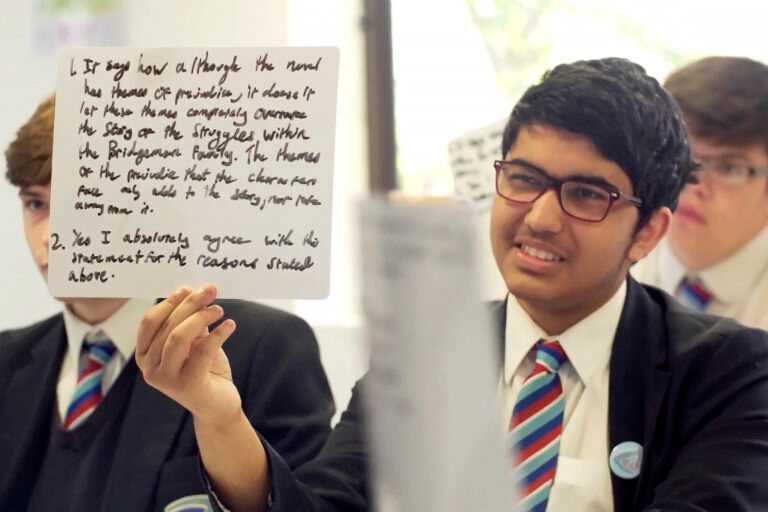 1. It says how although the novel
has themes of prejudice, it doesn't
let these themes completely overcome
the story of the struggles within
the Bridgeman family. The themes
of the prejudie that the characters
face only adds to the story, not take
away from it.
2. Yes I absolutely agree with this
statement for the reasons stated
above.